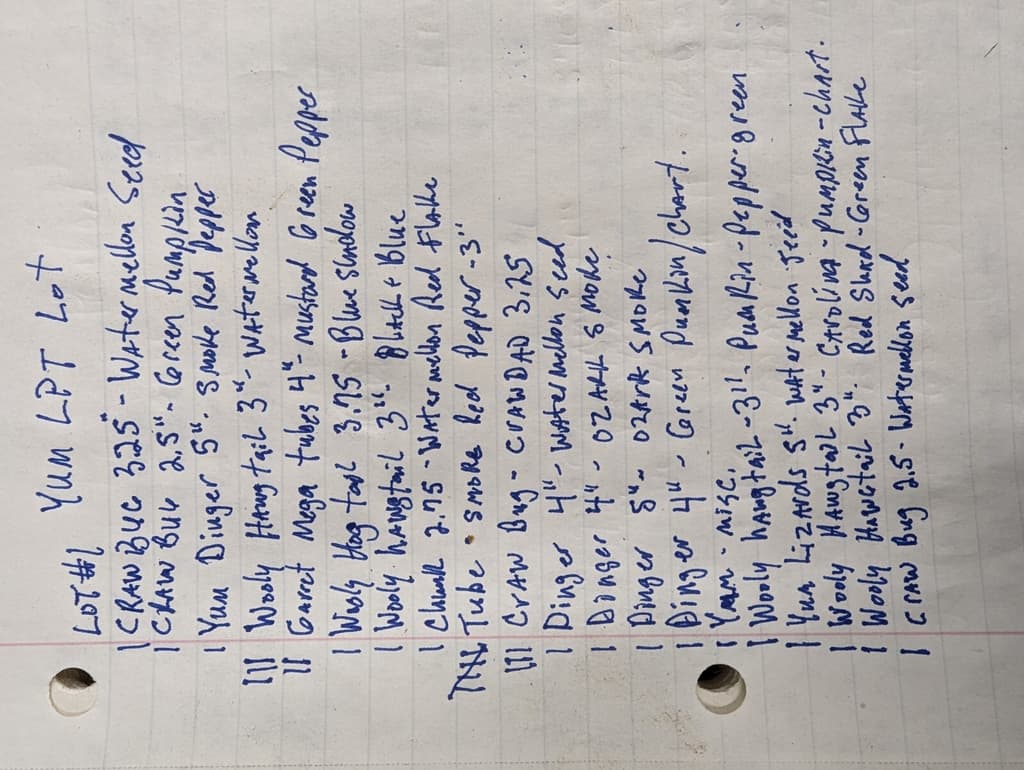 Yum LPT Lot
Lot #1
| CRAW BUG 3.25" - Watermellon Seed
| CRAW BUG 2.5" - Green Pumpkin
| Yum Dinger 5" - Smoke Red Pepper
||| Wooly Hawgtail 3" - Watermellon
|| Garret Mega tubes 4" - Mustard Green Pepper
| Wooly Hog tail 3.75 - Blue Shadow
| Wooly hawgtail 3" - Black + Blue
| Chunk 2.75 - Watermellon Red Flake
|||| Tube - Smoke Red Pepper - 3"
||| Craw Bug - CRAWDAD 3.25
| Dinger 4" - Watermellon Seed
| Dinger 4" - Ozark Smoke
| Dinger 5" - Ozark Smoke
| Dinger 4" - Green Pumkin/chart.
| Yum - misc.
| Wooly hawgtail - 3" - Pumkin - pepper - green
| Yum Lizards 5" - Watermellon seed
| Wooly Hawgtail 3" - Carolina - pumpkin - chart.
| Wooly Hawgtail 3" - Red Shad - Green Flake
| Craw Bug 2.5 - Watermellon Seed